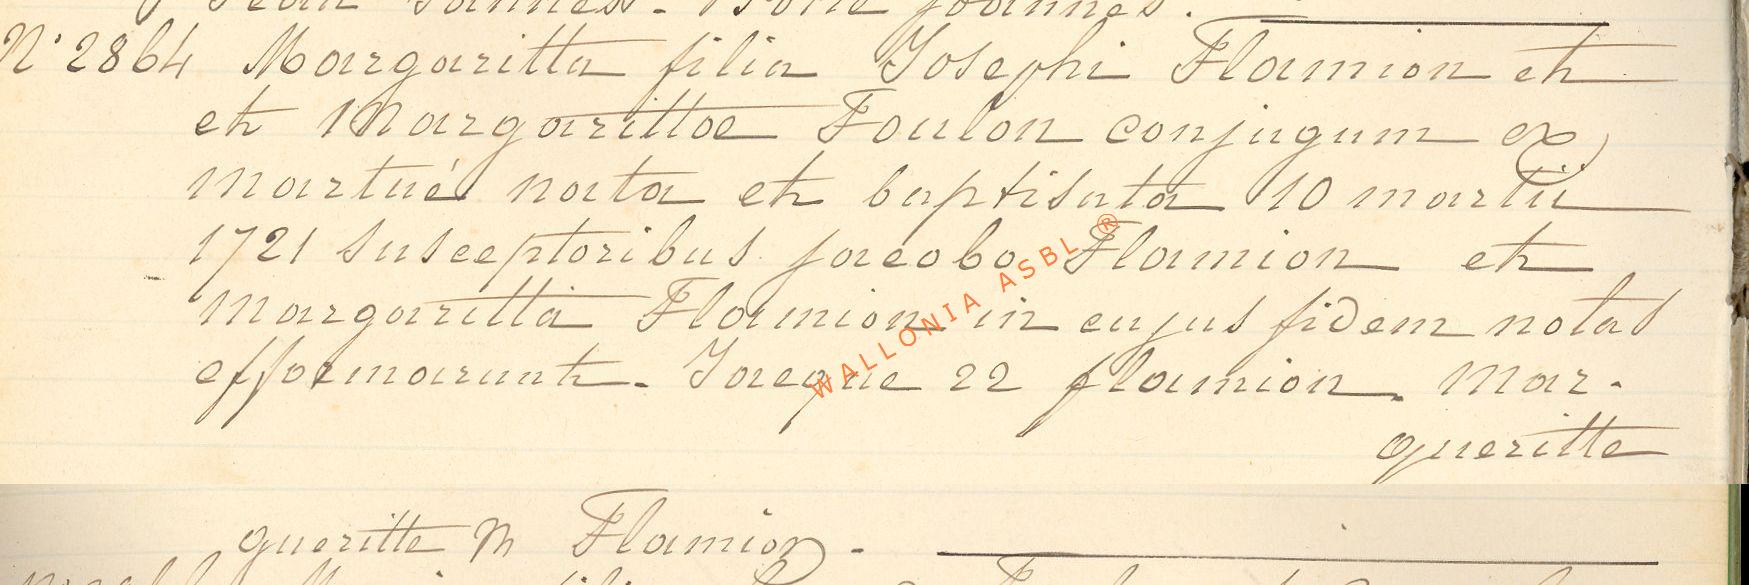 Jean Jannes. - Jeanne Joannes.
N° 2864 Margaritta filia Josephi Flamion et
et Margarittae Foulon conjugum ex
martué nata et baptisata 10 martii
1721 susceptoribus jacobo Flamion et
margaritta Flamion in cujus fidem notas
efformarunt. Jacque 22 flamion. Mar-
queritte
queritte M Flamion -
WALLONIA ASBL ®